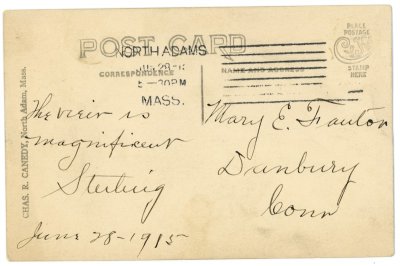 POST CARD
PLACE
POSTAGE
STAMP
HERE
NORTH ADAMS
5-30PM
MASS.
CORRESPONDENCE
NAME AND ADDRESS
CHAS. R. CANEDY, North Adam, Mass.
The view is
magnificent
Sterling
June 28-1915
Mary E. Fanton
Danbury
Conn